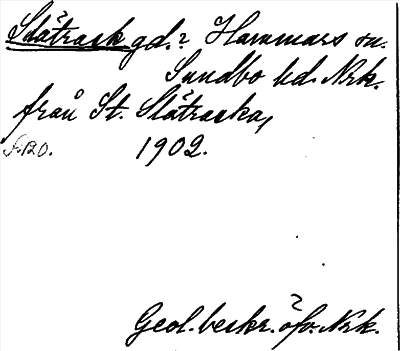 Slätrask gd.? Hammars sn.
Sundbo hd. Nrk.
från St. Slätraska,
s. 120. 1902.
Geol. beskr. öfv. Nrk.